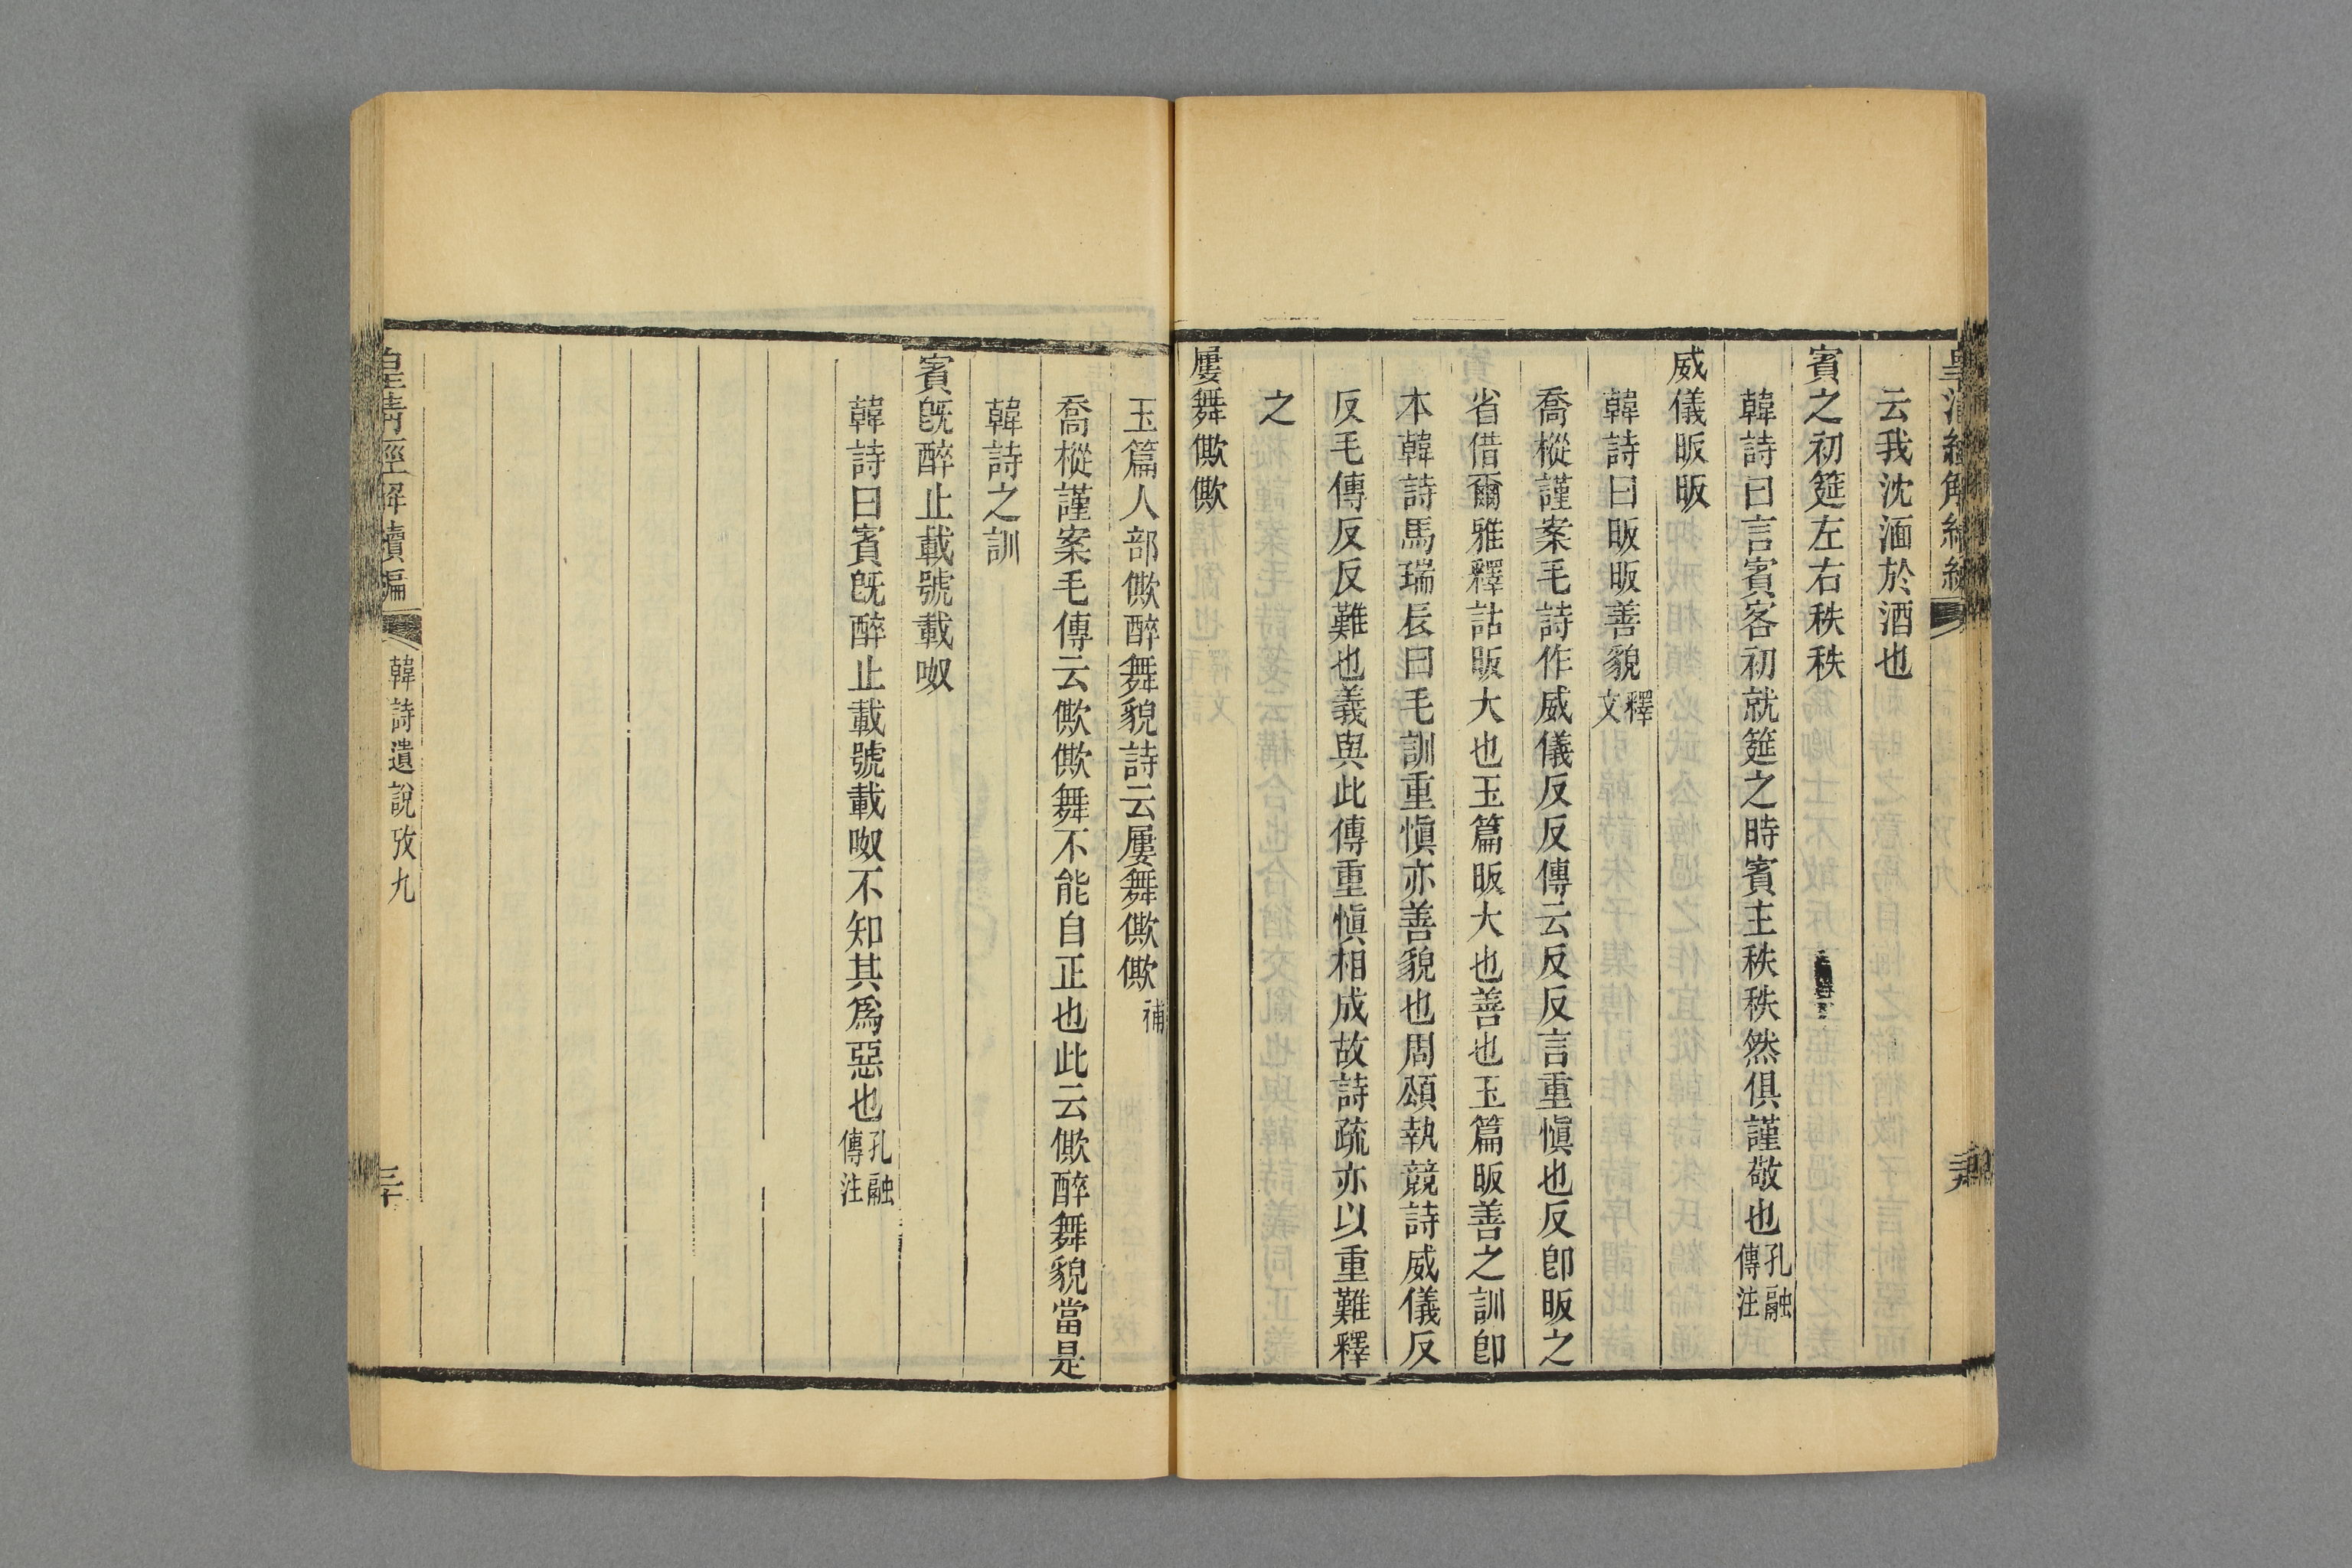 云我沈湎於酒也
賓之初筵左右秩秩
韓詩曰言賓客初就筵之時賓主秩秩然俱謹敬也孔融傳注
威儀昄昄
韓詩曰昄昄善貌釋文
喬樅謹案毛詩作威儀反反傳云反反言重愼也反卽昄之
省借爾雅釋詁昄大也玉篇昄大也善也玉篇昄善之訓卽
本韓詩馬瑞辰曰毛訓重愼亦善貌也周頌執競詩威儀反
反毛傳反反難也義與此傳重愼相成故詩疏亦以重難釋
之
屢舞僛僛
玉篇人部僛醉舞貌詩云屢舞僛僛補
喬樅謹案毛傳云僛僛舞不能自正也此云僛醉舞貌當是
韓詩之訓
賓旣醉止載號載呶
韓詩曰賓旣醉止載號載呶不知其爲惡也孔融傳注
皇淸經解續編
韓詩遺說攷九
三十